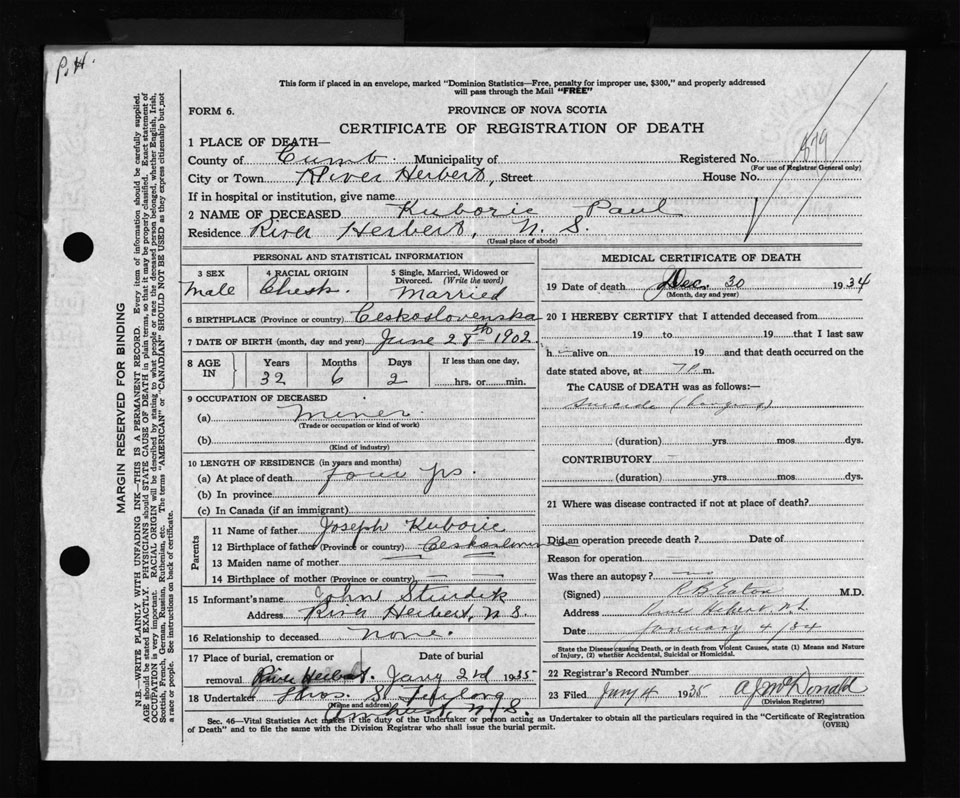 P.H.
This form if placed in an envelope, marked "Dominion Statistics—Free, penalty for improper use, $300," and properly addressed
will pass through the Mail "FREE"
FORM 6.
PROVINCE OF NOVA SCOTIA
CERTIFICATE OF REGISTRATION OF DEATH
1 PLACE OF DEATH—
County of Cumb. Municipality of Registered No. 879
(For use of Registrar General only)
City or Town River Herbert, Street House No.
If in hospital or institution, give name
2 NAME OF DECEASED Kuboric Paul
Residence River Herbert, N. S.
(Usual place of abode)
PERSONAL AND STATISTICAL INFORMATION
3 SEX
Male
4 RACIAL ORIGIN
Chesk.
5 Single, Married, Widowed or
Divorced. (Write the word)
Married
6 BIRTHPLACE (Province or country) Ceskoslovenska
7 DATE OF BIRTH (month, day and year) June 28th 1902.
8 AGE IN
Years 32
Months 6
Days 2
If less than one day,
hrs. or min.
9 OCCUPATION OF DECEASED
(a) Miner.
(Trade or occupation or kind of work)
(b)
(Kind of industry)
10 LENGTH OF RESIDENCE (in years and months)
(a) At place of death four yrs
(b) In province
(c) In Canada (if an immigrant)
Parents
11 Name of father Joseph Kuboric
12 Birthplace of father (Province or country) Ceskoslovenska
13 Maiden name of mother —
14 Birthplace of mother (Province or country) — —
15 Informant's name John Sturdik
Address River Herbert, N S.
16 Relationship to deceased None.
17 Place of burial, cremation or removal River Herbert.
Date of burial Jany 2nd 1935
18 Undertaker Thos. S.
(Name and address)
Amherst, N. S.
MEDICAL CERTIFICATE OF DEATH
19 Date of death Dec. 30 1934
(Month, day and year)
20 I HEREBY CERTIFY that I attended deceased from
19 to 19 that I last saw
h — alive on 19 and that death occurred on the
date stated above, at 7 P. m.
The CAUSE of DEATH was as follows:—
Suicide (hanging)
(duration) yrs. mos. dys.
CONTRIBUTORY —
(duration) yrs. mos. dys.
21 Where was disease contracted if not at place of death?
Did an operation precede death ? Date of
Reason for operation
Was there an autopsy? —
(Signed) R B Eaton M.D.
Address River Hebert N.S.
Date January 4/34
State the Disease causing Death, or in death from Violent Causes, state (1) Means and Nature
of Injury, (2) whether Accidental, Suicidal or Homicidal.
22 Registrar's Record Number
23 Filed Jany 4 1935 A J McDonald
(Division Registrar)
Sec. 46—Vital Statistics Act makes it the duty of the Undertaker or person acting as Undertaker to obtain all the particulars required in the "Certificate of Registration
of Death" and to file the same with the Division Registrar who shall issue the burial permit.
(OVER)
MARGIN RESERVED FOR BINDING
N.B.—WRITE PLAINLY WITH UNFADING INK—THIS IS A PERMANENT RECORD. Every item of information should be carefully supplied.
AGE should be stated EXACTLY. PHYSICIANS should STATE CAUSE OF DEATH in plain terms, so that it may be properly classified. Exact statement of
OCCUPATION is very important. RACIAL ORIGIN will be described by stating to what people or race the deceased person belonged, whether English, Irish,
Scottish, French, German, Russian, Ruthenian, etc. The terms "AMERICAN" or "CANADIAN" SHOULD NOT BE USED as they express citizenship but not
a race or people. See instructions on back of certificate.